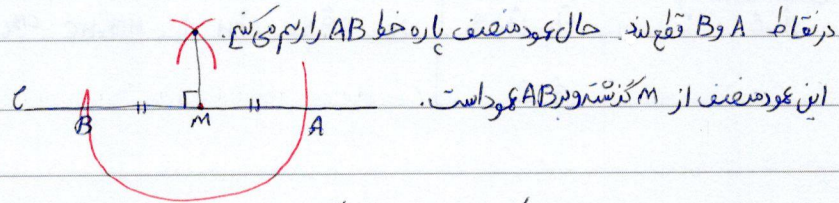 در نقاط A و B قطع کند. حال عمود منصف پاره خط AB را رسم می‌کنیم.
این عمود منصف از M گذشته و بر AB عمود است.
B M A